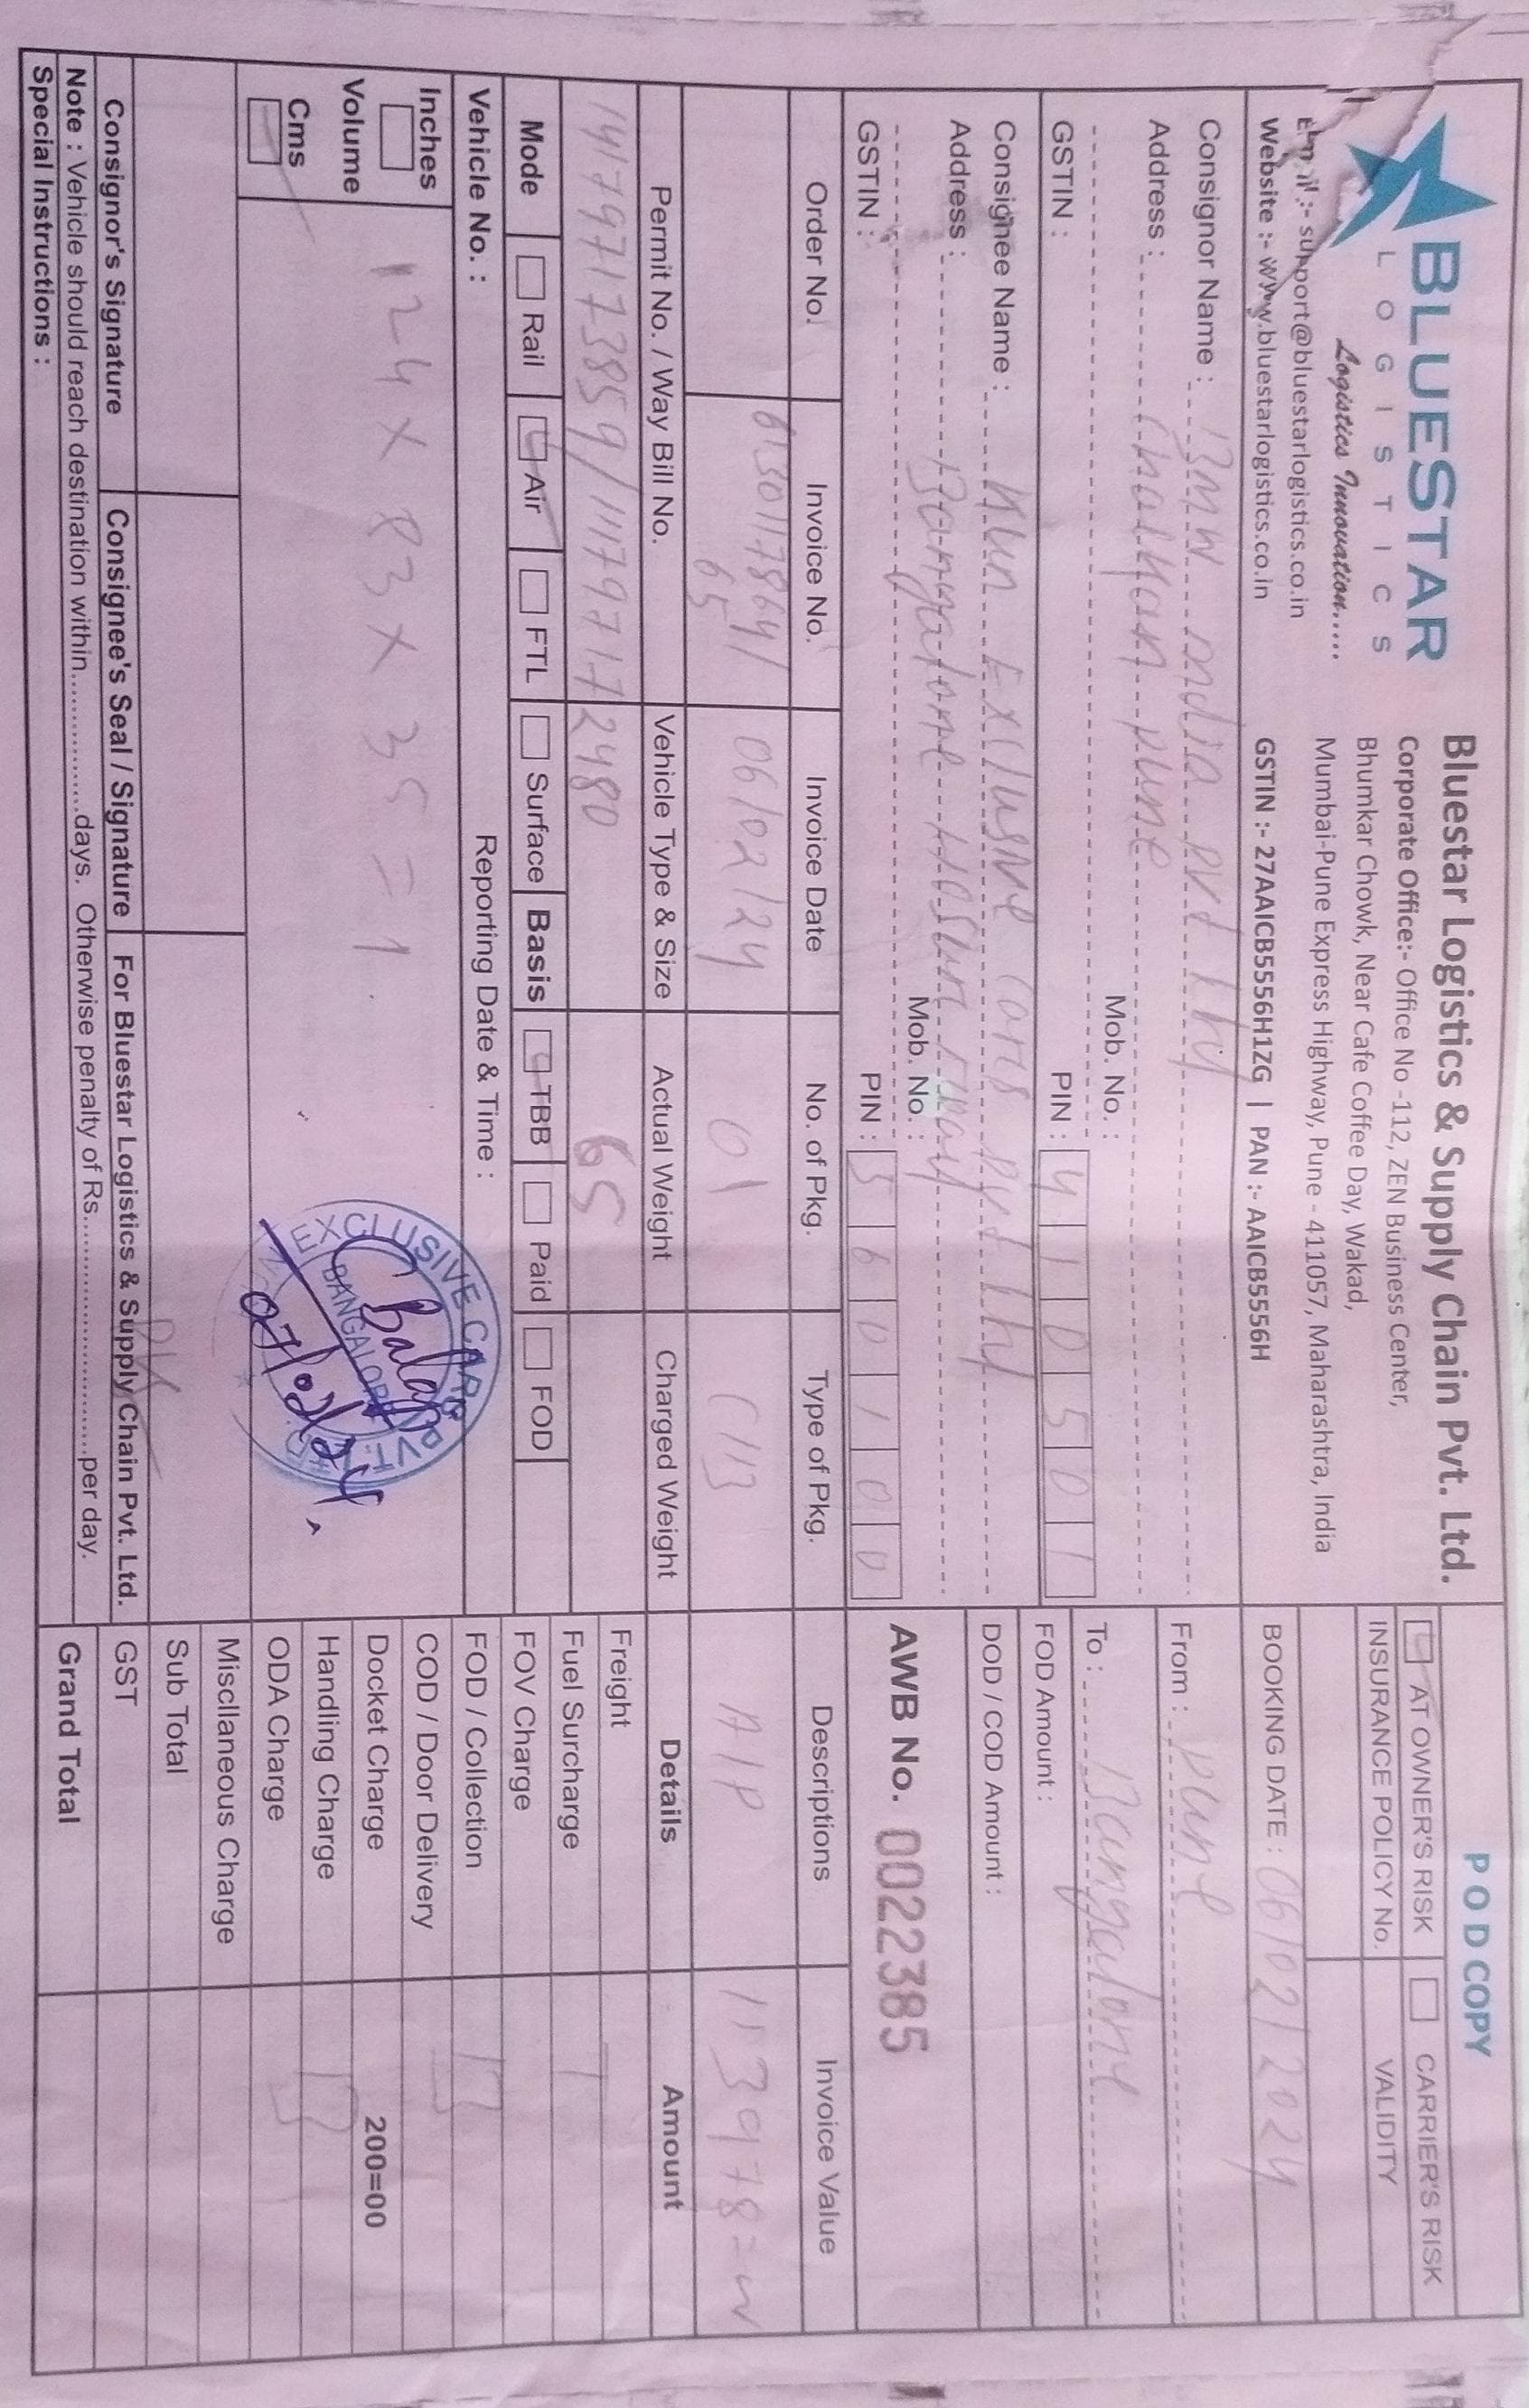 BLUESTAR
LOGISTICS
Logistics Innovation.....
Email :- support@bluestarlogistics.co.in
Website :- www.bluestarlogistics.co.in
Bluestar Logistics & Supply Chain Pvt. Ltd.
Corporate Office:- Office No -112, ZEN Business Center,
Bhumkar Chowk, Near Cafe Coffee Day, Wakad,
Mumbai-Pune Express Highway, Pune - 411057, Maharashtra, India
GSTIN :- 27AAICB5556H1ZG | PAN :- AAICB5556H
P O D COPY
AT OWNER'S RISK CARRIER'S RISK
INSURANCE POLICY No. VALIDITY
BOOKING DATE : 06/02/2024
Consignor Name : BMW India pvt
Address : pune
Mob. No. :
GSTIN : PIN : 410501
From : pune
To : Bangalore
FOD Amount :
DOD / COD Amount :
Consignee Name : Kun Exclusive cars pvt
Address : Bangalore Hosur
Mob. No. :
GSTIN : PIN : 560100
AWB No. 0022385
Order No. Invoice No. Invoice Date No. of Pkg. Type of Pkg. Descriptions Invoice Value
6130117864/ 06/02/24 01 A/P 113978=
65
Permit No. / Way Bill No. Vehicle Type & Size Actual Weight Charged Weight Details Amount
65
Mode Rail Air FTL Surface Basis TBB Paid FOD
Vehicle No. : Reporting Date & Time :
Inches
Volume
Cms
124 x 83 x 35 = 1
EXCLUSIVE CARS PVT.
BANGALORE
Balaji
07/02/24
Freight
Fuel Surcharge
FOV Charge
FOD / Collection
COD / Door Delivery
Docket Charge 200=00
Handling Charge
ODA Charge
Miscllaneous Charge
Sub Total
GST
Grand Total
Consignor's Signature Consignee's Seal / Signature For Bluestar Logistics & Supply Chain Pvt. Ltd.
Note : Vehicle should reach destination within.................days. Otherwise penalty of Rs.............................per day.
Special Instructions :